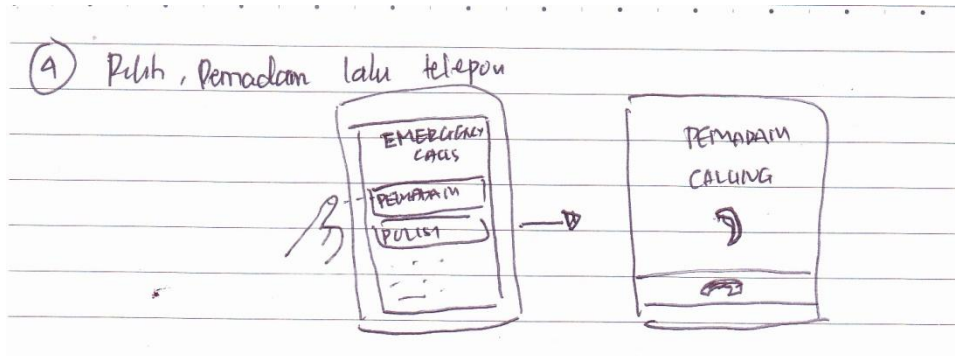 4 Pilih, Pemadam lalu telepon
EMERGENCY
CALLS
PEMADAM
POLISI
PEMADAM
CALLING